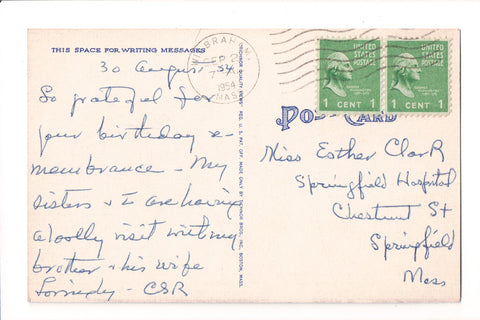 THIS SPACE FOR WRITING MESSAGES
30 August 54
So grateful for
your birthday re-
membrance - My
sisters & I are having
a lovely visit with my
brother & his wife
- CSR
DEXONOR QUALITY REG. U. S. PAT. OFF. MADE ONLY BY BROS., INC., BOSTON, MASS.
WILBRAHAM
SEP 2
1954
MASS.
UNITED
STATES
POSTAGE
1 CENT 1
UNITED
STATES
POSTAGE
1 CENT 1
POST CARD
Miss Esther Clark
Springfield Hospital
Chestnut St
Springfield
Mass